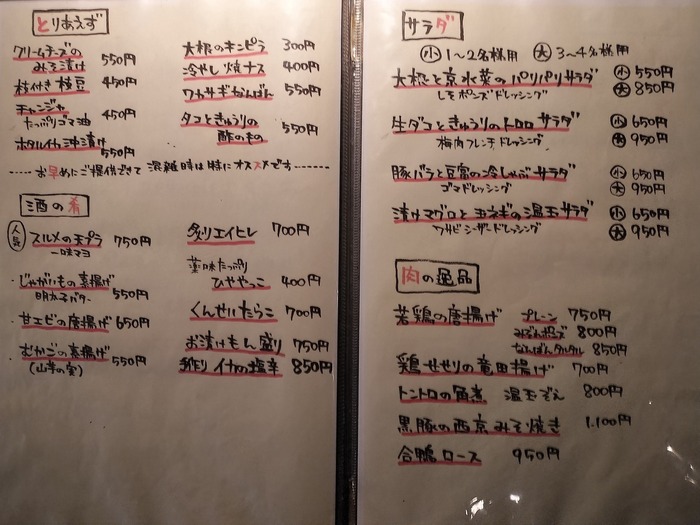 とりあえず
クリームチーズの
みそ漬け 550円
枝付き枝豆 450円
チャンジャ
たっぷりゴマ油 450円
ホタルイカ沖漬け
550円
大根のキンピラ 300円
冷やし焼ナス 400円
ワカサギなんばん 550円
タコときゅうりの
酢のもの 550円
お早めにご提供できて 混雑時は特にオススメです
酒の肴
人気 スルメの天プラ 750円
一味マヨ
・じゃがいもの素揚げ
明太子バター 550円
・甘エビの唐揚げ 650円
むかごの素揚げ
(山芋の実) 550円
炙りエイヒレ 700円
薬味たっぷり
ひややっこ 400円
くんせいたらこ 700円
お漬けもん盛り 750円
手作りイカの塩辛 850円
サラダ
小 1〜2名様用 大 3〜4名様用
大根と京水菜のパリパリサラダ 小 550円
しそポンズドレッシング 大 850円
生ダコときゅうりのトロロサラダ 小 650円
梅肉フレンチドレッシング 大 950円
豚バラと豆腐の冷しゃぶサラダ 小 650円
ゴマドレッシング 大 950円
漬けマグロと玉ネギの温玉サラダ 小 650円
ワサビシーザードレッシング 大 950円
肉の逸品
若鶏の唐揚げ プレーン 750円
みぞれポンズ 800円
なんばんタルタル 850円
鶏せせりの竜田揚げ 700円
トントロの角煮 温玉ぞえ 800円
黒豚の西京みそ焼き 1.100円
合鴨ロース 950円